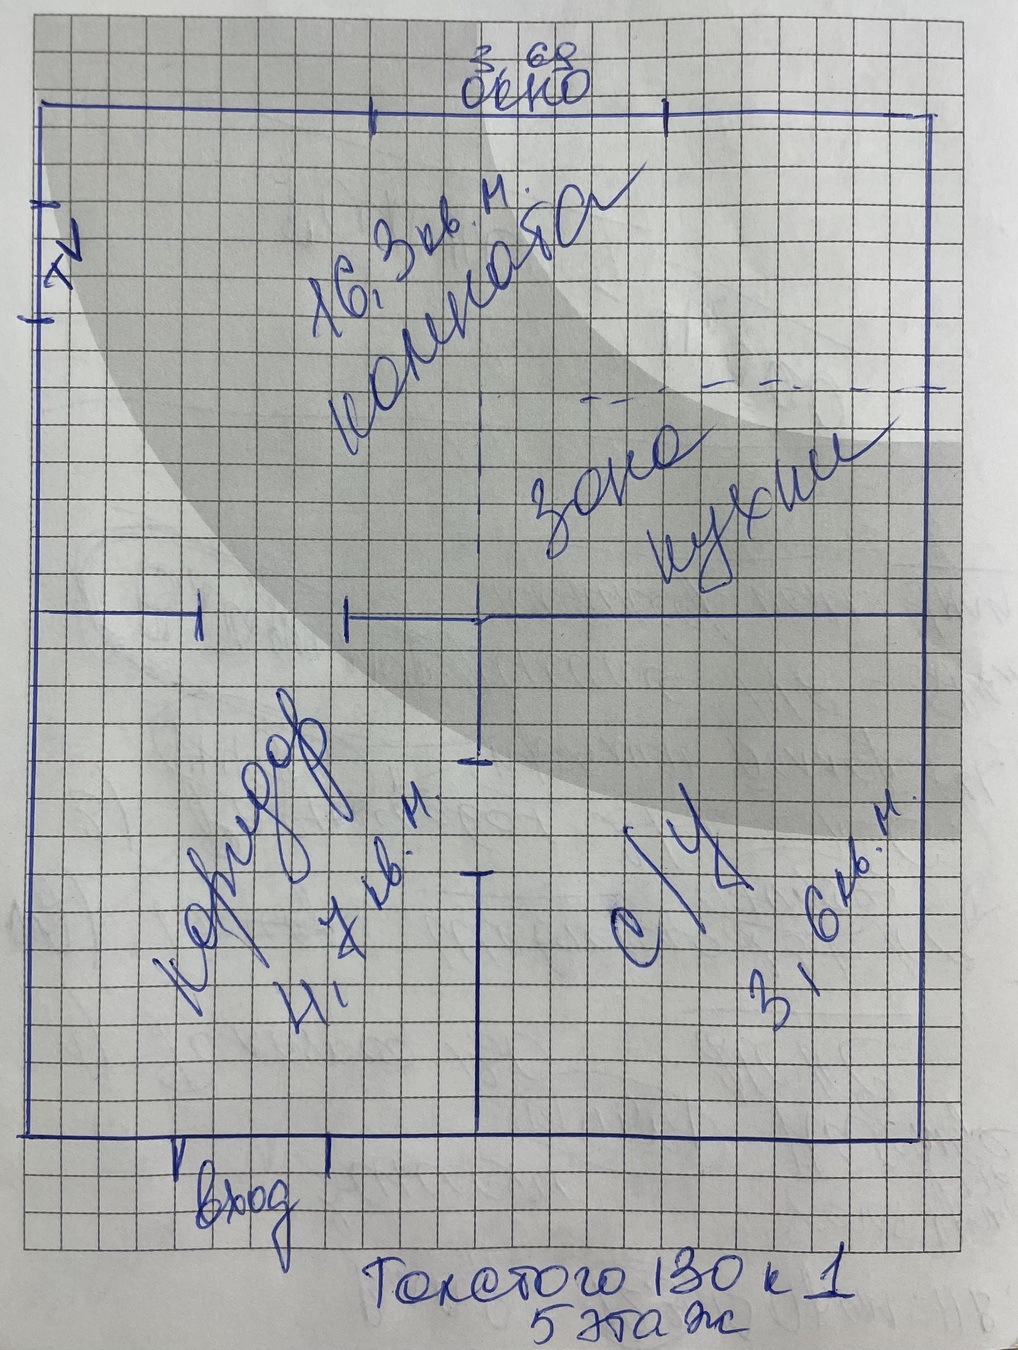 3,69
окно
TV
16,3 кв. м.
комната
зона
кухни
коридор
4,7 кв. м.
с/у
3,6 кв. м.
вход
Толстого 130 к 1
5 этаж